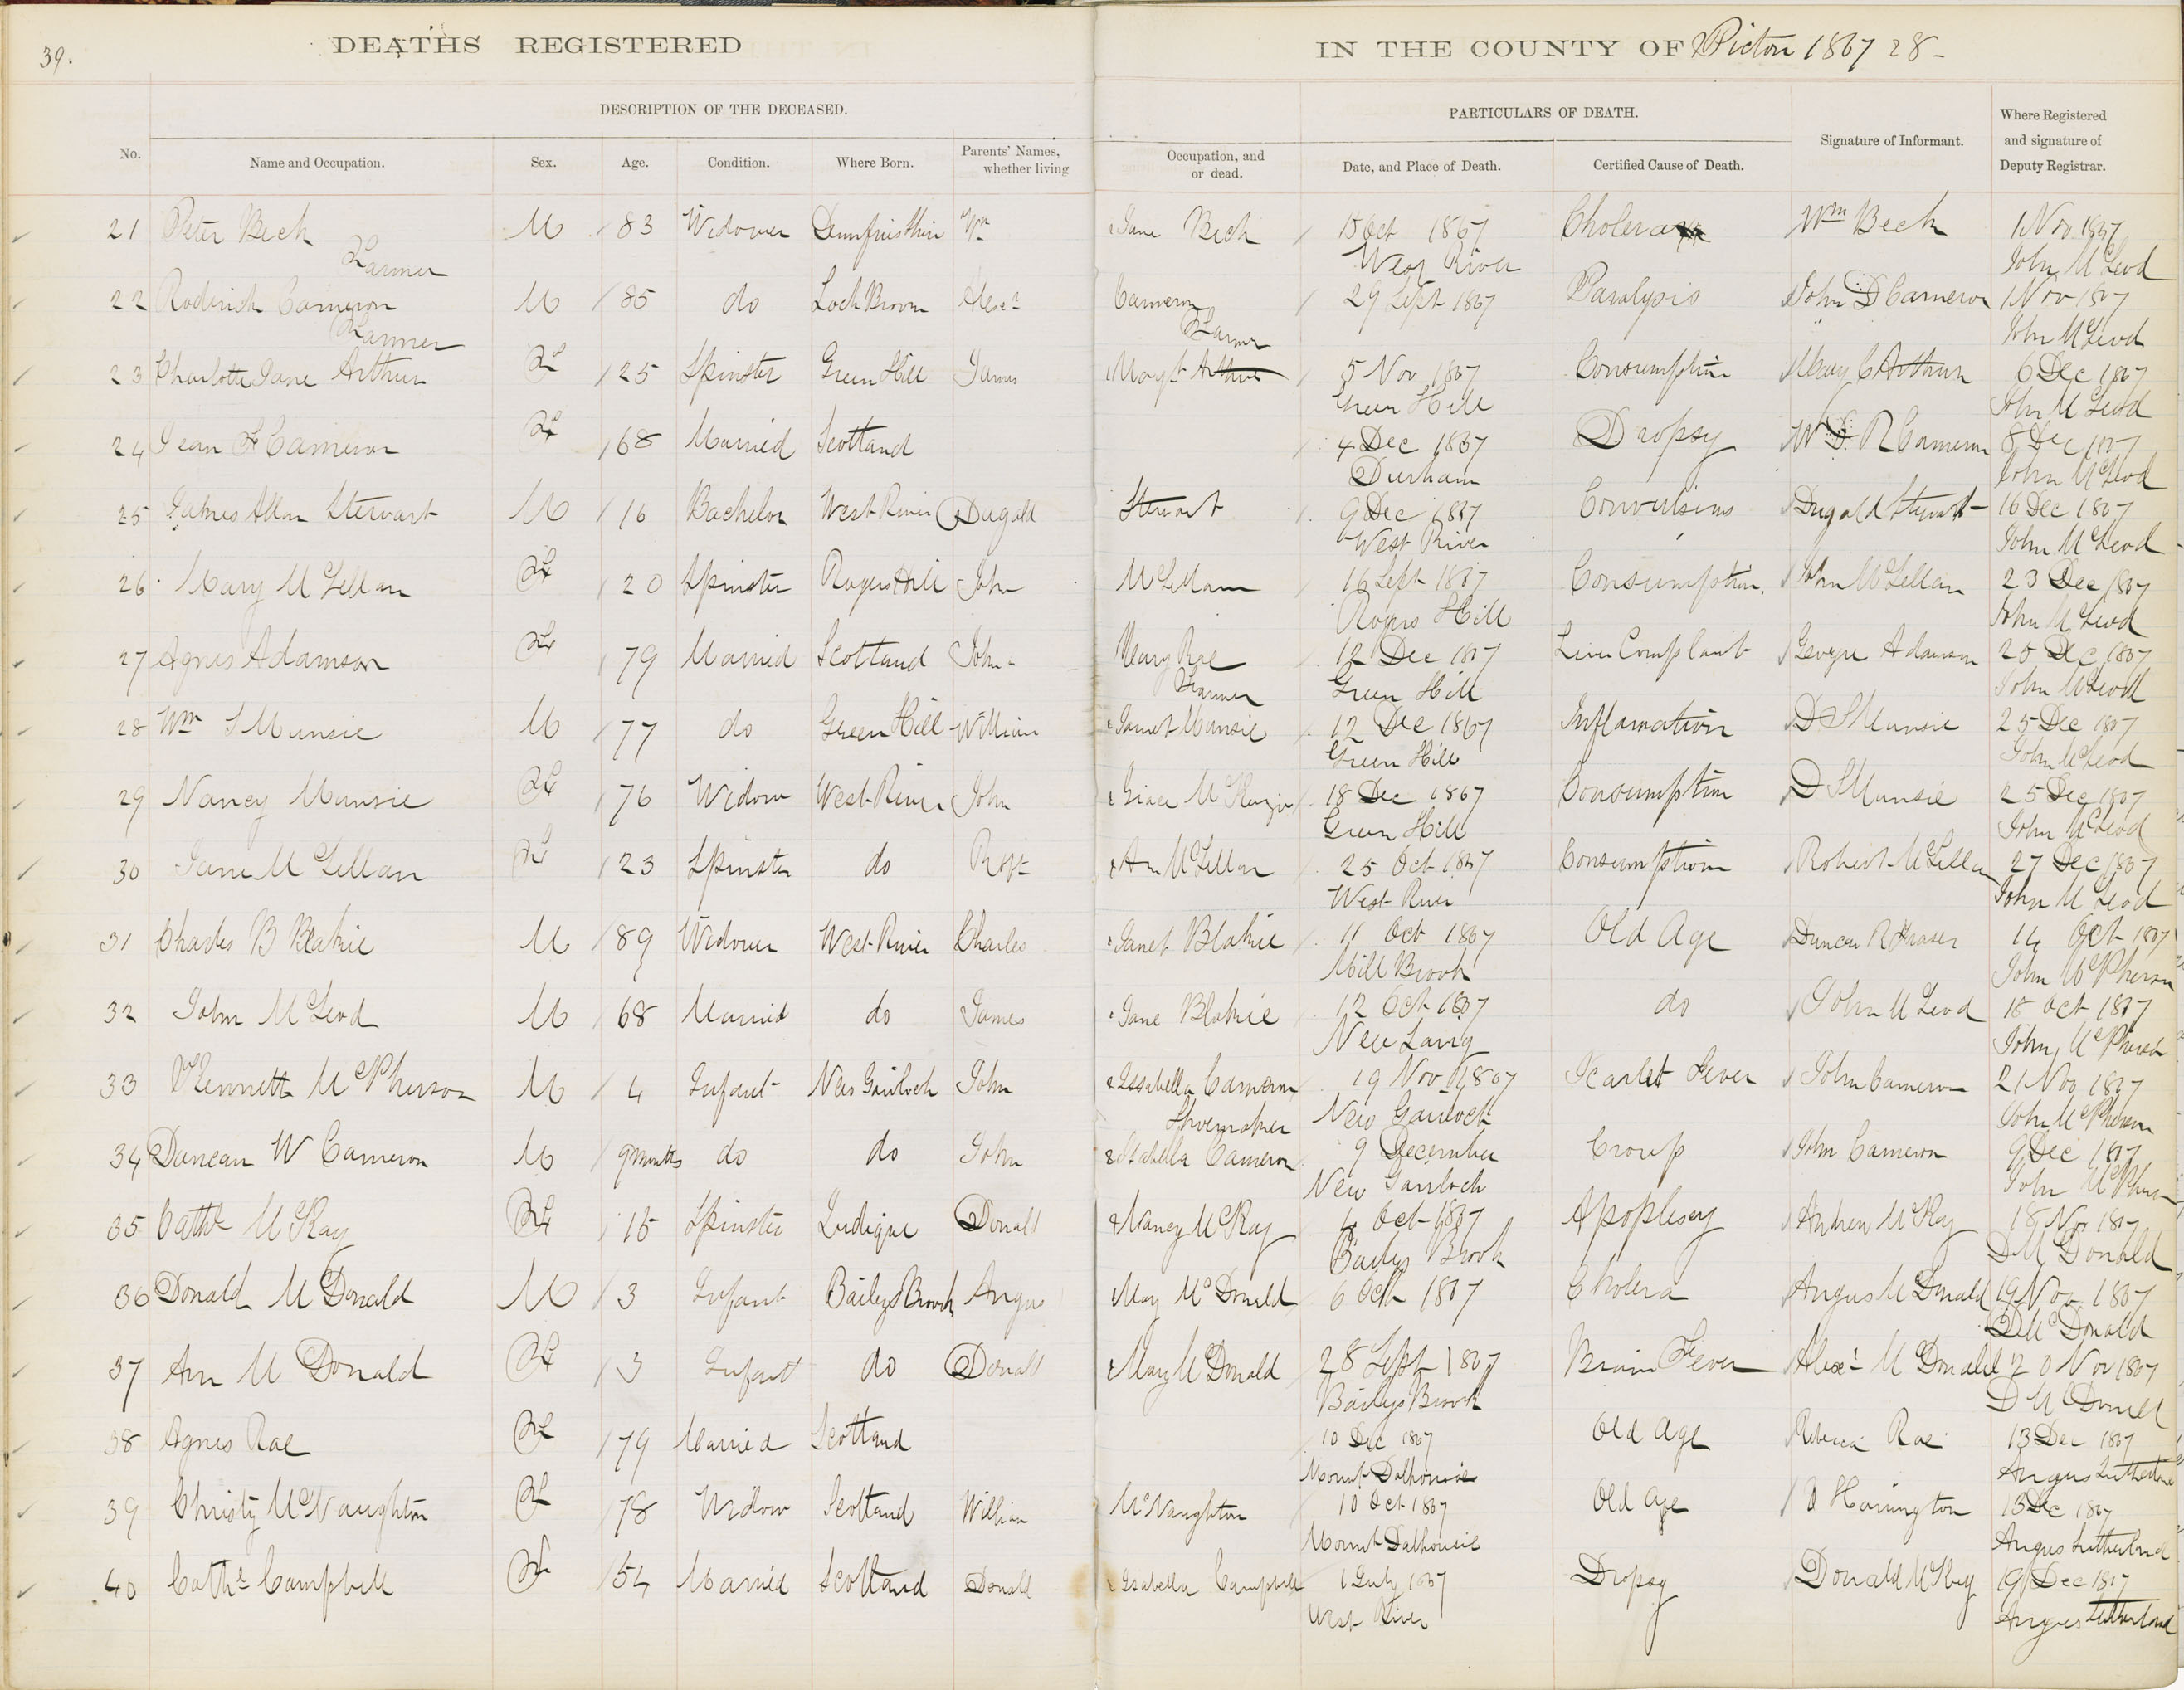 39.
DEATHS REGISTERED
IN THE COUNTY OF Pictou 1867 28-
DESCRIPTION OF THE DECEASED.
PARTICULARS OF DEATH.
No. Name and Occupation. Sex. Age. Condition. Where Born. Parents' Names, whether living Occupation, and or dead. Date, and Place of Death. Certified Cause of Death. Signature of Informant. Where Registered and signature of Deputy Registrar.
21 Peter Beck M 83 Widower Dumfriesshire Wm & Jane Beck 15 Oct 1867 Cholera Wm Beck 1 Nov 1867
Farmer West River John McLeod
22 Roderick Cameron M 85 do Loch Broom Alexr Cameron 29 Sept 1867 Paralysis John D Cameron 1 Nov 1867
Farmer Farmer John McLeod
23 Charlotte Jane Arthur F 25 Spinster Green Hill James & Margt Arthur 5 Nov 1867 Consumption Arthur 6 Dec 1867
Green Hill John McLeod
24 Jean F Cameron F 68 Married Scotland 4 Dec 1867 Dropsy W D. R Cameron 8 Dec 1867
Durham John McLeod
25 James Allan Stewart M 16 Bachelor West River Dugald Stewart 9 Dec 1867 Convulsions Dugald Stewart 16 Dec 1867
West River John McLeod
26 Mary McLellan F 20 Spinster Rogers Hill John McLellan 16 Sept 1867 Consumption. John McLellan 23 Dec 1867
Rogers Hill John McLeod
27 Agnes Adamson F 79 Married Scotland John - Mary Rae 12 Dec 1867 Liver Complaint George Adamson 25 Dec 1867
Farmer Green Hill John McLeod
28 Wm S Munsie M 77 do Green Hill William & Janet Munsie 12 Dec 1867 Inflamation D S Munsie 25 Dec 1867
Green Hill John McLeod
29 Nancy Munsie F 76 Widow West River John & Grace McKenzie 18 Dec 1867 Consumption D S Munsie 25 Dec 1867
Green Hill John McLeod
30 Jane McLellan F 23 Spinster do Robt & Ann McLellan 25 Oct 1867 Consumption Robert McLellan 27 Dec 1867
West River John McLeod
31 Charles B Blakie M 89 Widower West River Charles & Janet Blakie 11 Oct 1867 Old Age Duncan R Fraser 14 Oct 1867
Mill Brook John McPherson
32 John McLeod M 68 Married do James & Jane Blakie 12 Oct 1867 do John McLeod 18 Oct 1867
New Lairg John McPherson
33 Kenneth McPherson M 4 Infant New Gairloch John & Issabella Cameron 19 Nov 1867 Scarlet Fever John Cameron 21 Nov 1867
Shoemaker New Gairloch John McPherson
34 Duncan W Cameron M 9 months do do John & Isabella Cameron 9 December Croup John Cameron 9 Dec 1867
New Gairloch John McPherson
35 Cathe McKay F 15 Spinster Donald & Nancy McKay Oct 1867 Apoplexey Andrew McKay 18 Nov 1867
Baileys Brook D McDonald
36 Donald McDonald M 3 Infant Baileys Brook Angus & May McDonald 6 Oct 1867 Cholera Angus McDonald 19 Nov 1867
D McDonald
37 Ann McDonald F 3 Infant do Donald & Mary McDonald 28 Sept 1867 Brain Fever Alexr McDonald 20 Nov 1867
Baileys Brook D McDonald
38 Agnes Rae F 79 Married Scotland 10 Dec 1867 Old Age Rebecca Rae 13 Dec 1867
Mount Dalhousie Angus Sutherland
39 Christy McNaughton F 78 Widow Scotland William McNaughton 10 Oct 1867 Old Age Harrington 13 Dec 1867
Mount Dalhousie Angus Sutherland
40 Cathe Campbell F 54 Married Scotland Donald & Isabella Campbell 1 July 1867 Dropsy Donald McKay 19 Dec 1867
West River Angus Sutherland